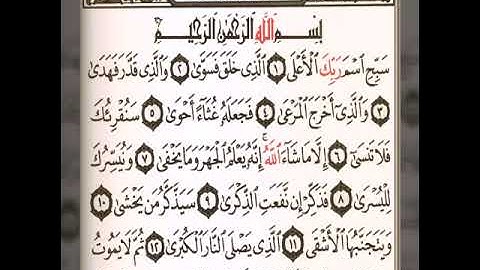 بِسْمِ اللَّهِ الرَّحْمَٰنِ الرَّحِيمِ
سَبِّحِ اسْمَ رَبِّكَ الْأَعْلَى ١ الَّذِي خَلَقَ فَسَوَّىٰ ٢ وَالَّذِي قَدَّرَ فَهَدَىٰ
٣ وَالَّذِي أَخْرَجَ الْمَرْعَىٰ ٤ فَجَعَلَهُ غُثَاءً أَحْوَىٰ ٥ سَنُقْرِئُكَ
فَلَا تَنسَىٰ ٦ إِلَّا مَا شَاءَ اللَّهُ ۚ إِنَّهُ يَعْلَمُ الْجَهْرَ وَمَا يَخْفَىٰ ٧ وَنُيَسِّرُكَ
لِلْيُسْرَىٰ ٨ فَذَكِّرْ إِن نَّفَعَتِ الذِّكْرَىٰ ٩ سَيَذَّكَّرُ مَن يَخْشَىٰ ١٠
وَيَتَجَنَّبُهَا الْأَشْقَى ١١ الَّذِي يَصْلَى النَّارَ الْكُبْرَىٰ ١٢ ثُمَّ لَا يَمُوتُ